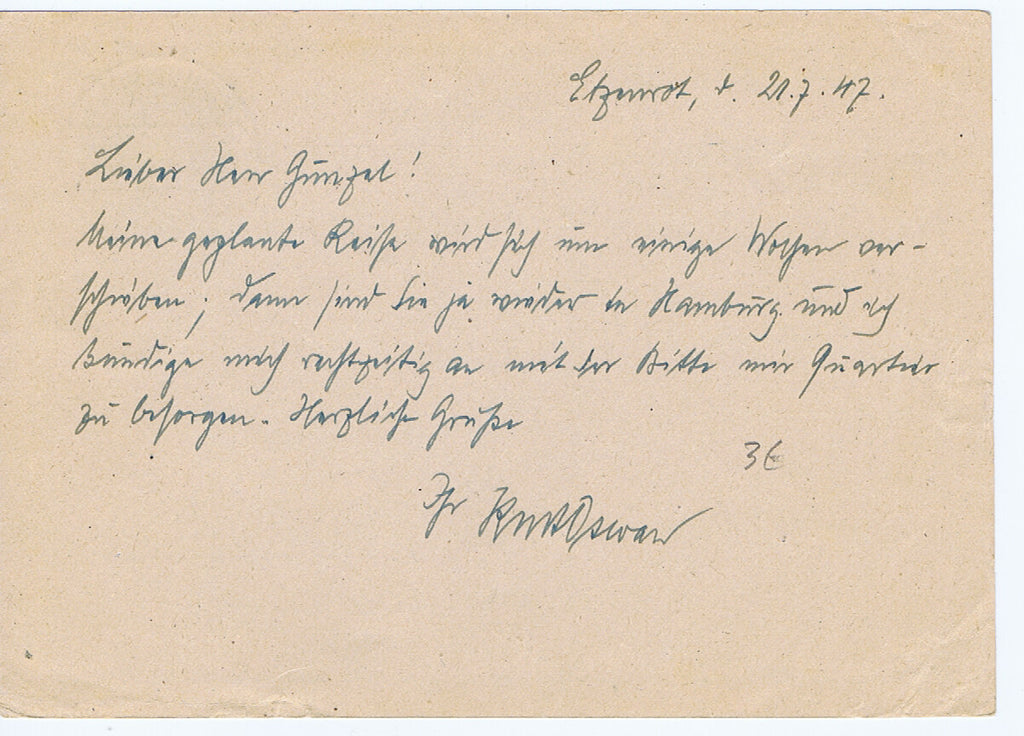 Etzenrot, d. 21.7.47.
Lieber Herr Gunzel!
Meine geplante Reise wird sich um einige Wochen ver-
schieben; dann sind Sie ja wieder in Hamburg und ich
kündige mich rechtzeitig an mit der Bitte mir Quartier
zu besorgen. Herzliche Grüße
3€
Ihr Kurt Oswald